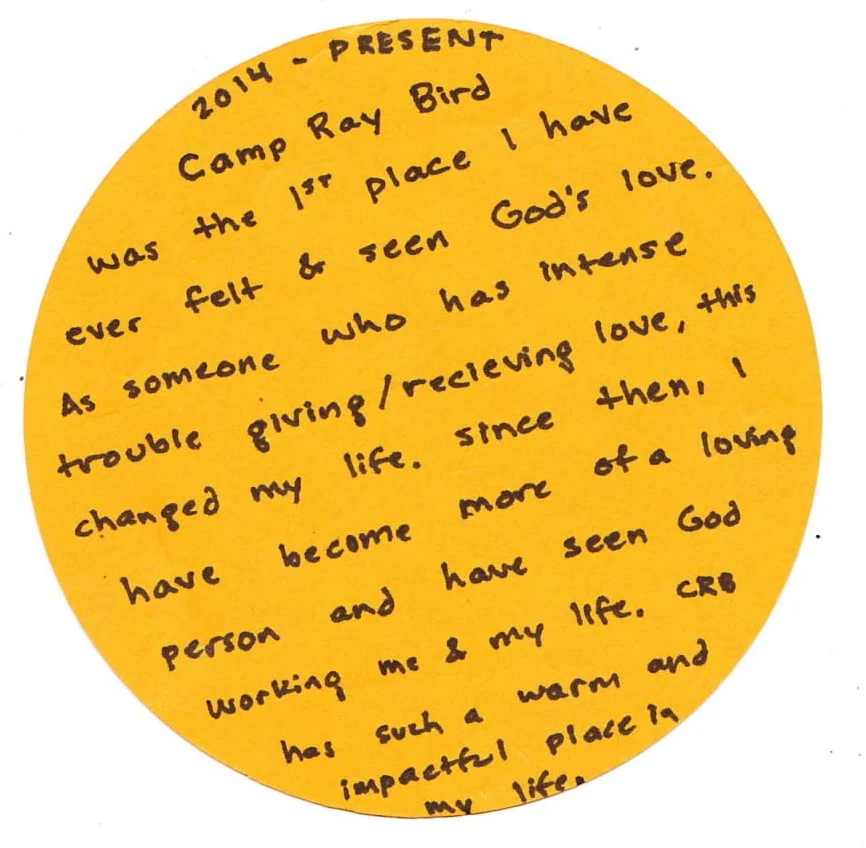 2014 - PRESENT
Camp Ray Bird
was the 1ST place I have
ever felt & seen God's love.
As someone who has intense
trouble giving/recieving love, this
changed my life. since then, I
have become more of a loving
person and have seen God
working me & my life. CRB
has such a warm and
impactful place in
my life.